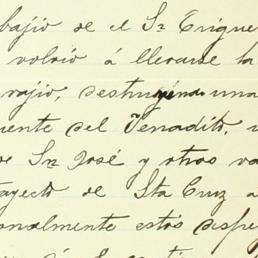 bajío de el Sr Enrique
volvió á llevarse la
vajio, destruyendo una
uente del Venadito, u
de Sn José y otros va
tayecto de Sta Cruz a
onalmente estas dispe